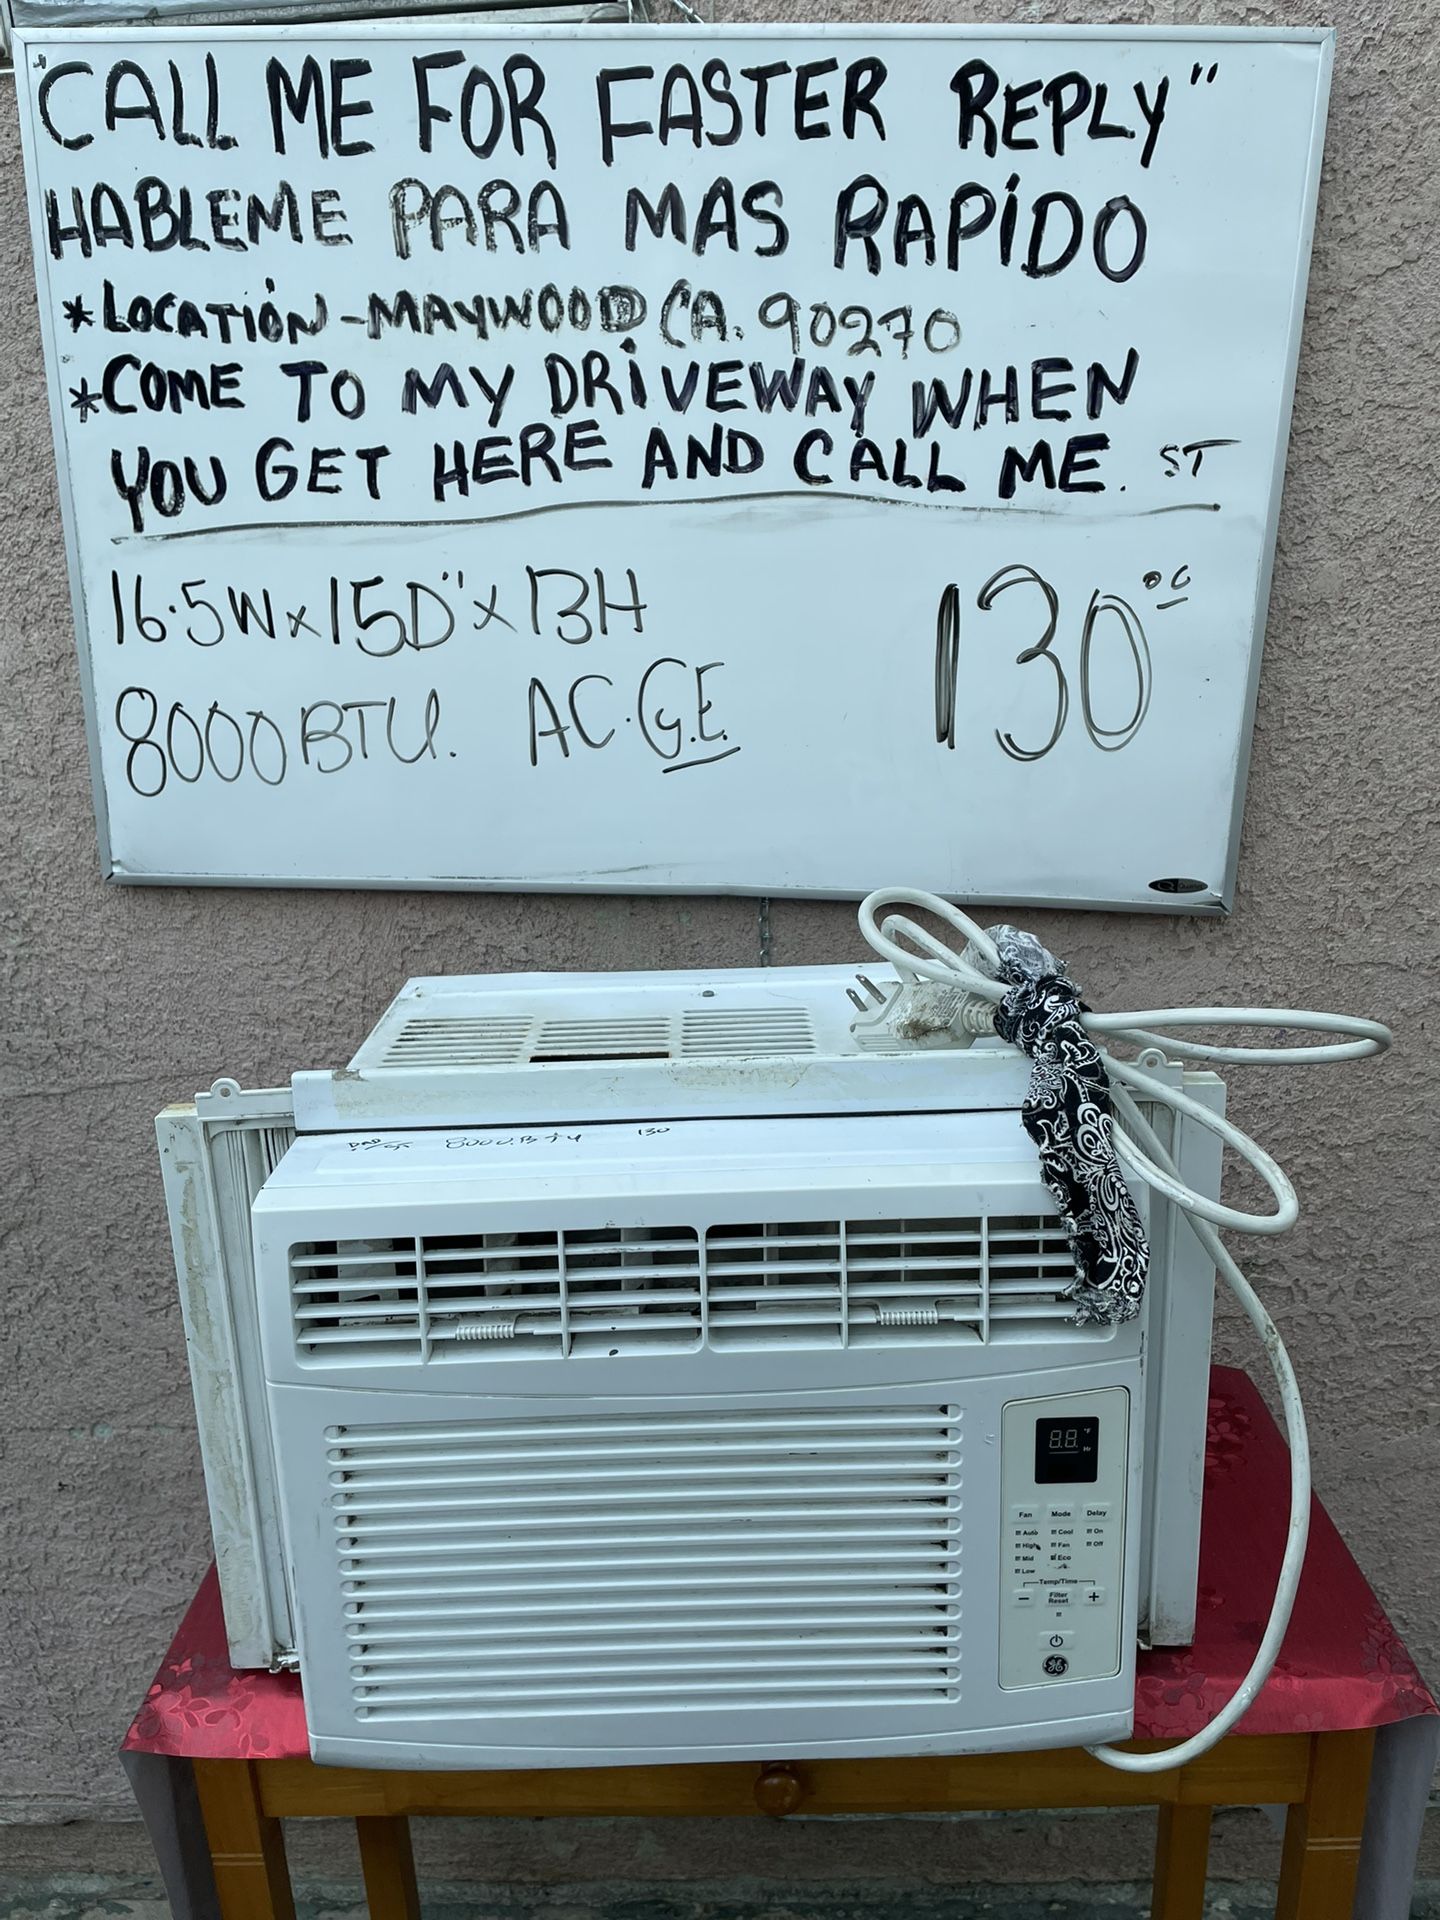 "CALL ME FOR FASTER REPLY"
HABLEME PARA MAS RAPIDO
*LOCATION-MAYWOOD CA. 90270
*COME TO MY DRIVEWAY WHEN
YOU GET HERE AND CALL ME. ST
16.5W x 15D" x 13H
130.00
8000 BTU. AC. G.E.
8000.Btu 130
88 °F
Hr
Fan Mode Delay
Auto Cool On
High Fan Off
Mid Eco
Low
Temp/Time
− Filter Reset +
GE